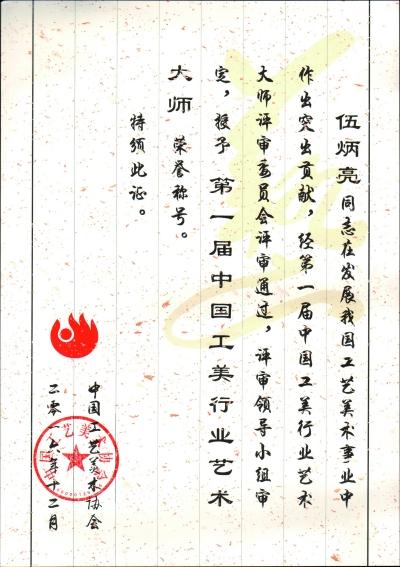 伍炳亮同志在发展我国工艺美术事业中
作出突出贡献，经第一届中国工美行业艺术
大师评审委员会评审通过，评审领导小组审
定，授予第一届中国工美行业艺术
大师荣誉称号。
特颁此证。
中国工艺美术协会
二零一六年十二月